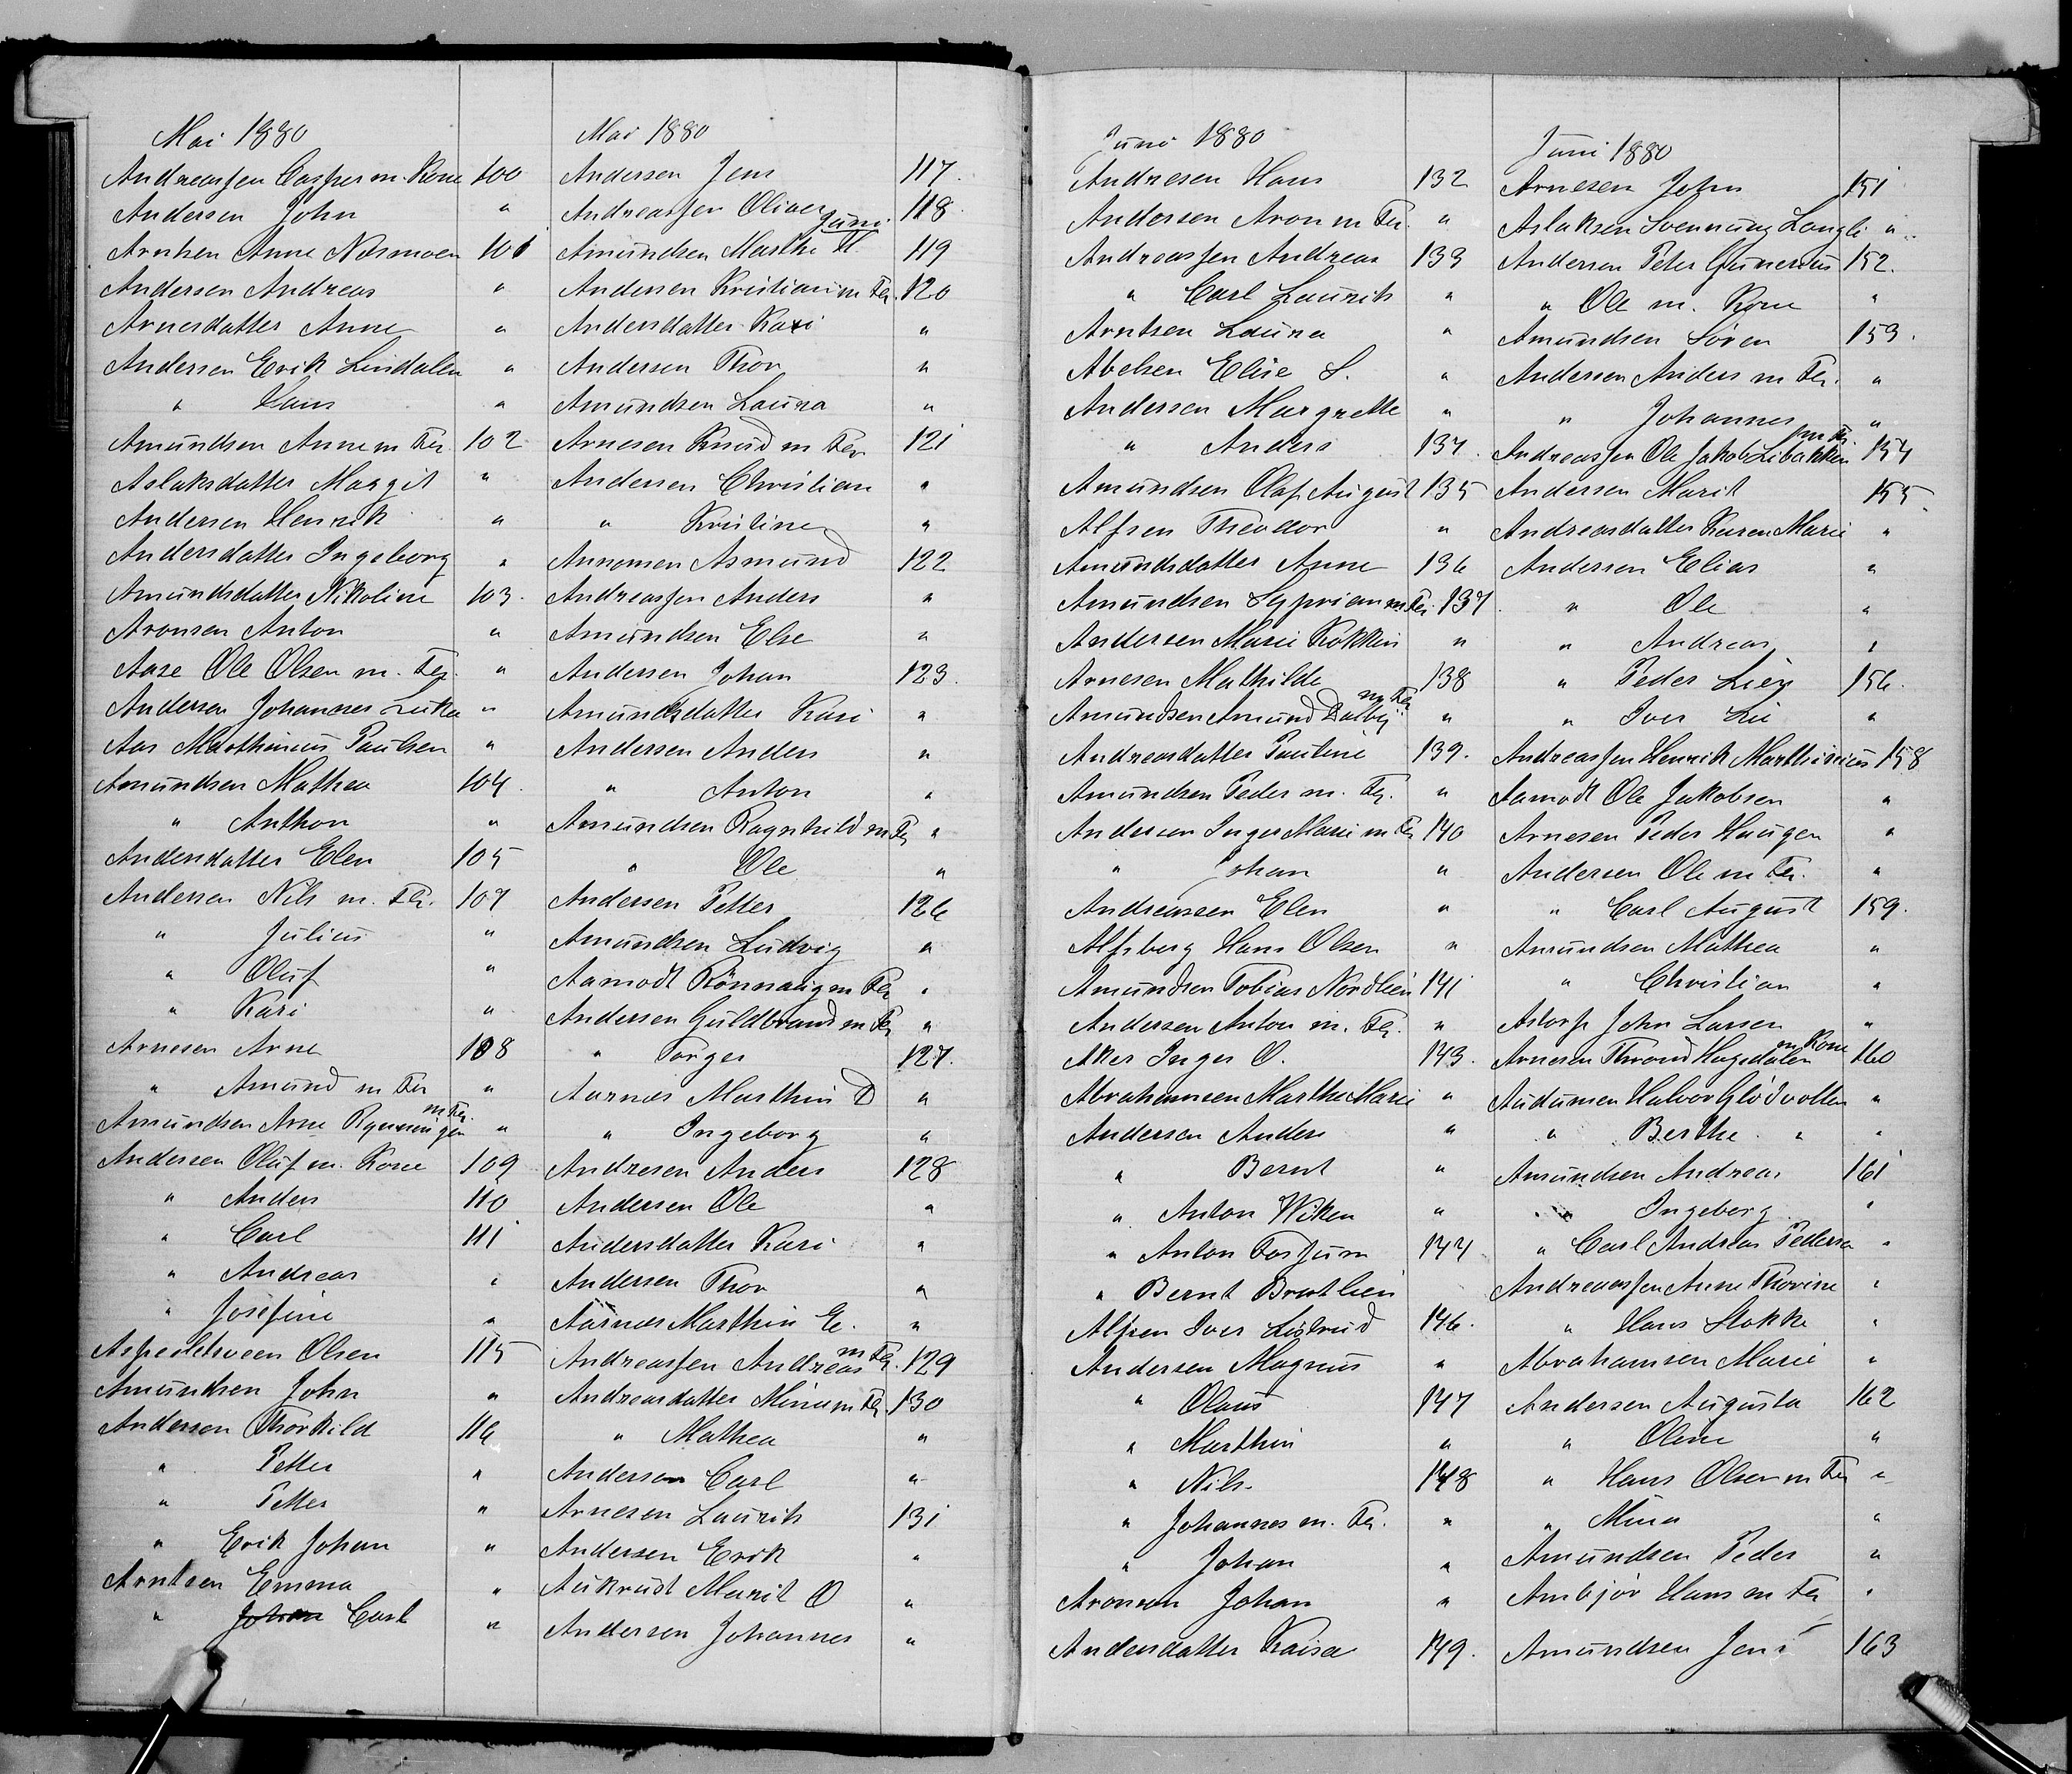 Mai 1880
Andreassen Casper m. Kone 100
Andersen John "
Arntsen Anne Næsmoen 101
Andersen Andreas "
Arnesdatter Anne "
Andersen Erik Lindalen "
" Hans "
Amundsen Anne m Fa. 102
Aslaksdatter Margit "
Andersen Henrik "
Andersdatter Ingeborg "
Amundsdatter Nikoline 103.
Aronsen Anton "
Aase Ole Olsen m. Fa. "
Andersen Johannes "
Aas Marthinus Paulsen "
Amundsen Mathea 104.
" Anthon "
Andersdatter Elen 105
Andersen Nils m. Fa. 107
" Julius "
" Oluf "
" Kari "
Arnesen Arne 108
" Amund m Fa "
Amundsen Arne Rynningen m Fa. "
Andersen Oluf m. Kone 109
" Anders 110
" Carl 111
" Andreas "
" Josefine "
Olsen 115
Amundsen John "
Andersen Thorkild 116
" Petter "
" Petter "
" Erik Johan "
Arntsen Emma "
" Johan Carl "
Mai 1880
Andersen Jens 117.
Andreassen Oliver 118
Juni
Amundsen Marthe M. 119
Andersen Kristian m Fa. 120
Andersdatter Kari "
Andersen Thor "
Amundsen Laura "
Arnesen Knud m Fa 121
Andersen Christian "
" Kristine "
Annonsen Asmund 122
Andreassen Anders "
Amundsen Else "
Andersen Johan 123.
Amundsdatter Kari "
Andersen Anders "
" Anton "
Amundsen Ragnhild m Fa "
" Ole "
Andersen Petter 126
Amundsen Ludvig "
Aamodt Rönnaug m Fa "
Andersen Guldbrand m Fa "
" Torger 127.
Aarnæs Marthin D "
" Ingeborg "
Andresen Anders 128
Andersen Ole "
Andersdatter Kari "
Andersen Thor "
Aarnæs Marthin E. "
Andreassen Andreas m Fa. 129
Andreasdatter Mina m Fa. 130
" Mathea "
Andersen Carl "
Arnesen Laurits 131
Andersen Erik "
Aukrust Marit O "
Andersen Johannes "
Juni 1880
Andresen Hans 132
Andersen Aron m Fa. "
Andreassen Andreas 133
" Carl Laurits "
Arntsen Laura "
Abelsen Elise S. "
Andersen Margrette "
" Anders 134.
Amundsen Olaf August 135
Alfsen Theodor "
Amundsdatter Anne 136
Amundsen Syprian m Fa. 137.
Andersen Marie Kokkin "
Arnesen Mathilde 138
Amundsen Amund Dalby m Fa "
Andreasdatter Pauline 139.
Amundsen Peder m. Fa. "
Andersen Inger Marie m Fa 140
" Johan "
Andreassen Elen "
Alfsberg Hans Olsen "
Amundsen Tobias Nordlien 141
Andersen Anton m. Fa. "
Aker Inger O. 143.
Abrahamsen Marthe Marie "
Andersen Anders "
" Bernt "
" Anton Wiken "
" Anton Fossum 144
" Bernt Bratlien
Alfsen Iver Listrud 146.
Andersen Magnus "
" Olaus 147
" Marthin "
" Nils 148
" Johannes m. Fa. "
" Johan "
Aronsen Johan "
Andersdatter Kaisa 149.
Juni 1880
Arnesen John 151
Aslaksen Svennung Langli "
Andersen Peter Gunerius 152.
" Ole m. Kone "
Amundsen Søren 153.
Andersen Anders m Fa. "
" Johannes "
Andreassen Ole Jakob Libakken m Fa. 154
Andersen Marit 155.
Andreasdatter Karen Marie "
Andersen Elias "
" Ole "
" Andreas "
" Peder Lien 156.
" Iver Lie "
Andreassen Henrik Marthinius 158
Aamodt Ole Jakobsen "
Arnesen Peder Haugen "
Andersen Ole m Fa. "
" Carl August 159.
Amundsen Mathea "
" Christian "
Astorp John Larsen "
Arnesen Thrond Hagedalen m Kone 160
Audunsen Halvor Glødvolten "
" Berthe " "
Amundsen Andreas 161
" Ingeborg "
" Carl Andreas Pedersen "
Andreassen Anne Thorine "
" Hans Stokke "
Abrahamsen Marie "
Andersen Augusta 162
" Oline "
" Hans Olsen m Fa "
" Mina "
Amundsen Peder "
Arnbjör Hans m Fa "
Amundsen Jens 163